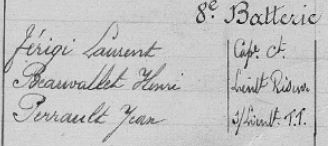 8e Batterie
Jérigi Laurent Cape ct.
Beauvallet Henri Lieutt Réserve
Perrault Jean s/Lieutt. T.T.